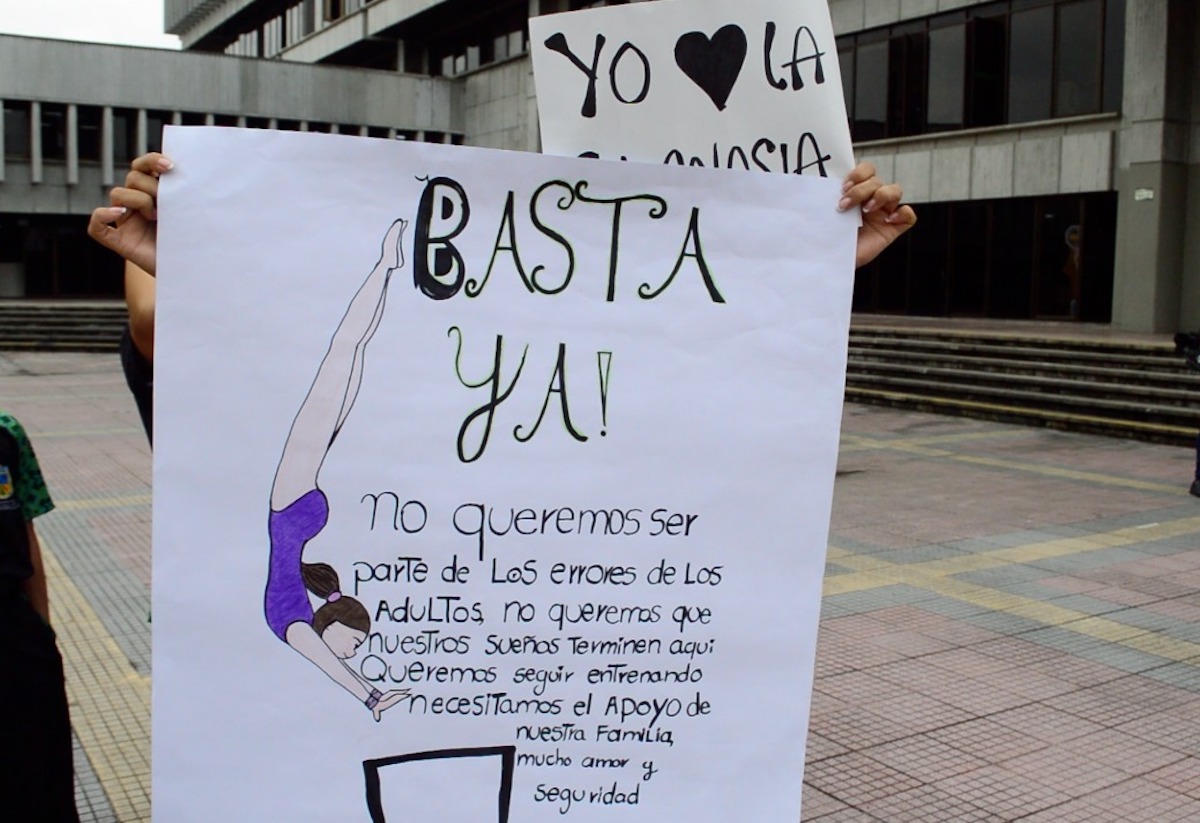 YO ♥ LA
BASTA
YA!
No queremos ser
parte de Los errores de Los
AdULTOS, no queremos que
nuestros sueños Terminen aquí
Queremos seguir entrenando
necesitamos el Apoyo de
nuestra Familia,
mucho amor y
seguridad